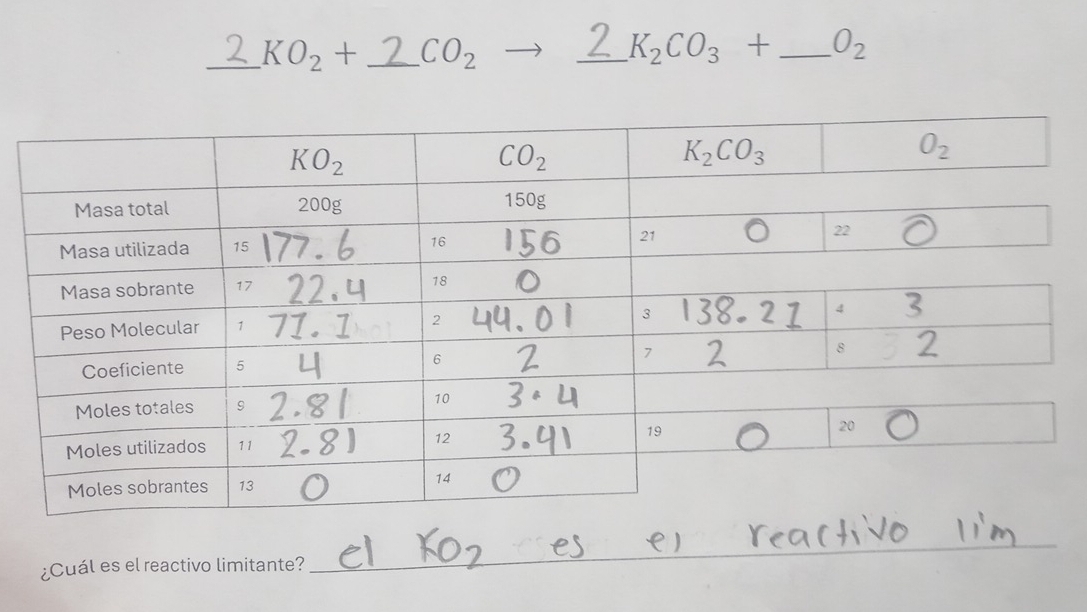 2 KO₂ + 2 CO₂ → 2 K₂CO₃ + __O₂
KO₂ CO₂ K₂CO₃ O₂
Masa total 200g 150g
Masa utilizada 15 177.6 16 156 21 0 22 0
Masa sobrante 17 22.4 18 0
Peso Molecular 1 71.1 2 44.01 3 138.21 4 3
Coeficiente 5 4 6 2 7 2 8 2
Moles totales 9 2.81 10 3.4
Moles utilizados 11 2.81 12 3.41 19 0 20 0
Moles sobrantes 13 0 14 0
¿Cuál es el reactivo limitante? el KO₂ es el reactivo lim